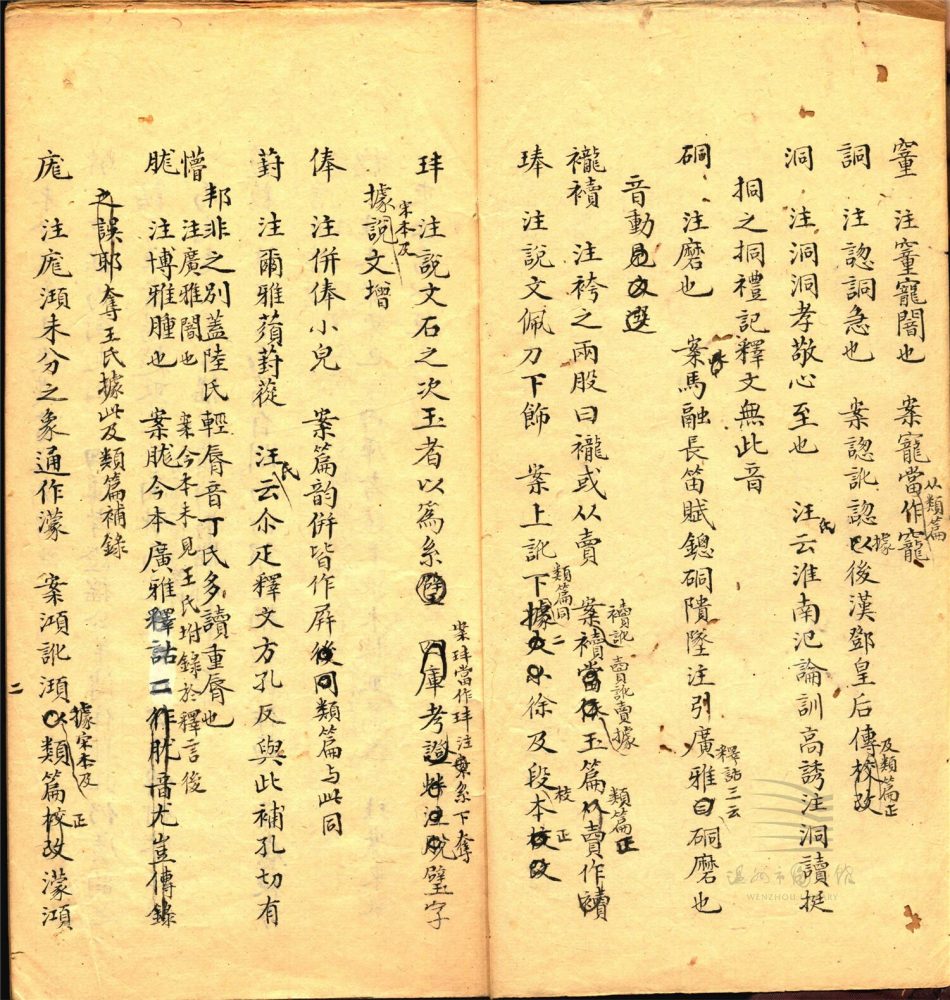 窻 注窻寵闇也 案寵當作竉
从類篇
詷 注認詷急也 案認訛認以後漢鄧皇后傳校改
據
及類篇正
洞 注洞洞孝敬心至也 汪云淮南氾論訓高誘注洞讀挺
氏
挏之挏禮記釋文無此音
硐 注磨也 案馬融長笛賦鏓硐隤墜注引廣雅曰硐磨也
釋詁三云
音動見文選
襱襩 注袴之兩股曰襱或从賣 案襩當依玉篇以賣作襩
襩訛賣訛賣據
類篇正
琫 注說文佩刀下飾 案上訛下據大小徐及段本校改
類篇同二
校正
玤 注說文石之次玉者以爲系璧 四庫考證此注脫璧字
案玤當作玤注案系下奪
據說文增
宋本及
俸 注倂俸小皃 案篇韵倂皆作屏後同類篇与此同
葑 注爾雅蘋葑蓯 汪云尒疋釋文方孔反與此補孔切有
氏
邦非之別蓋陸氏輕脣音丁氏多讀重脣也
懵 注廣雅闇也 案今本未見王氏坿錄於釋言後
胧 注博雅腫也 案胧今本廣雅釋詁二作肬音尤豈傳錄
之誤耶 奪王氏據此及類篇補錄
庬 注庬澒未分之象通作濛 案鴻訛澒以類篇校改濛鴻
據宋本及
正
二
温州市图书馆
WENZHOU LIBRARY